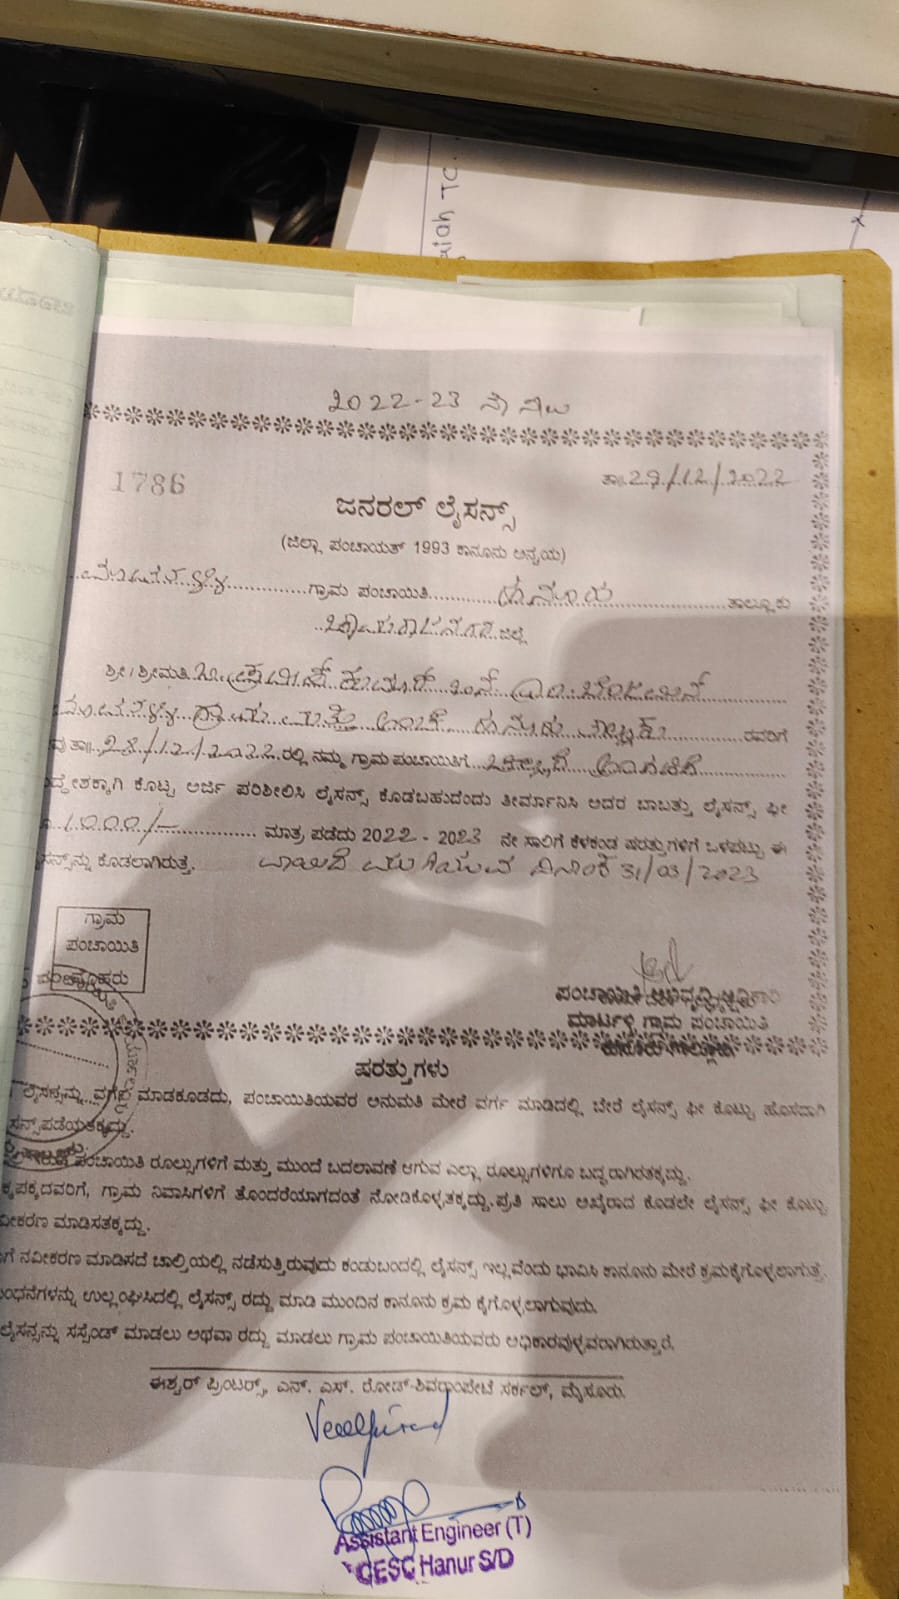 aiah TC
2022-23 ನೇ ಸಾಲು
1786
ತಾ॥ 29/12/2022
ಜನರಲ್ ಲೈಸನ್ಸ್
(ಜಿಲ್ಲಾ ಪಂಚಾಯತ್ 1993 ಕಾನೂನು ಅನ್ವಯ)
ಗ್ರಾಮ ಪಂಚಾಯಿತಿ ಹನೂರು ತಾಲ್ಲೂಕು
ಚಾಮರಾಜನಗರ ಜಿಲ್ಲೆ
ಶ್ರೀ/ಶ್ರೀಮತಿ ಕುಮಾರ್ ಬಿನ್
ಗ್ರಾಮ ಮತ್ತು ಅಂಚೆ ಹನೂರು ತಾಲ್ಲೂಕು ರವರಿಗೆ
ತಾ॥ 28/12/2022 ರಲ್ಲಿ ನಮ್ಮ ಗ್ರಾಮ ಪಂಚಾಯಿತಿಗೆ
ದ್ದೇಶಕ್ಕಾಗಿ ಕೊಟ್ಟ ಅರ್ಜಿ ಪರಿಶೀಲಿಸಿ ಲೈಸನ್ಸ್ ಕೊಡಬಹುದೆಂದು ತೀರ್ಮಾನಿಸಿ ಅದರ ಬಾಬತ್ತು ಲೈಸನ್ಸ್ ಫೀ
1000/- ಮಾತ್ರ ಪಡೆದು 2022 - 2023 ನೇ ಸಾಲಿಗೆ ಕೆಳಕಂಡ ಷರತ್ತುಗಳಿಗೆ ಒಳಪಟ್ಟು ಈ
ಸನ್ಸ್‌ನ್ನು ಕೊಡಲಾಗಿರುತ್ತೆ. ವಾಯಿದೆ ಮುಗಿಯುವ ದಿನಾಂಕ 31/03/2023
ಗ್ರಾಮ
ಪಂಚಾಯಿತಿ
ಮೊಹರು
ಪಂಚಾಯಿತಿ ಅಭಿವೃದ್ಧಿ ಅಧಿಕಾರಿ
ಮಾರ್ಟಳ್ಳಿ ಗ್ರಾಮ ಪಂಚಾಯಿತಿ
ಹನೂರು ತಾಲ್ಲೂಕು
ಷರತ್ತುಗಳು
ಲೈಸನ್ಸನ್ನು ವರ್ಗ ಮಾಡಕೂಡದು, ಪಂಚಾಯಿತಿಯವರ ಅನುಮತಿ ಮೇರೆ ವರ್ಗ ಮಾಡಿದಲ್ಲಿ ಬೇರೆ ಲೈಸನ್ಸ್ ಫೀ ಕೊಟ್ಟು ಹೊಸದಾಗಿ
ಸನ್ಸ್‌ಪಡೆಯತಕ್ಕದ್ದು.
ಪಂಚಾಯಿತಿ ರೂಲ್ಸುಗಳಿಗೆ ಮತ್ತು ಮುಂದೆ ಬದಲಾವಣೆ ಆಗುವ ಎಲ್ಲಾ ರೂಲ್ಸುಗಳಿಗೂ ಬದ್ದರಾಗಿರತಕ್ಕದ್ದು.
ಕ್ಕಪಕ್ಕದವರಿಗೆ, ಗ್ರಾಮ ನಿವಾಸಿಗಳಿಗೆ ತೊಂದರೆಯಾಗದಂತೆ ನೋಡಿಕೊಳ್ಳತಕ್ಕದ್ದು. ಪ್ರತಿ ಸಾಲು ಅಖೈರಾದ ಕೂಡಲೇ ಲೈಸನ್ಸ್ ಫೀ ಕೊಟ್ಟು
ವೀಕರಣ ಮಾಡಿಸತಕ್ಕದ್ದು.
ಗೆ ನವೀಕರಣ ಮಾಡಿಸದೆ ಚಾಲ್ತಿಯಲ್ಲಿ ನಡೆಸುತ್ತಿರುವುದು ಕಂಡುಬಂದಲ್ಲಿ ಲೈಸನ್ಸ್ ಇಲ್ಲವೆಂದು ಭಾವಿಸಿ ಕಾನೂನು ಮೇರೆ ಕ್ರಮಕೈಗೊಳ್ಳಲಾಗುತ್ತೆ.
ಬಂಧನೆಗಳನ್ನು ಉಲ್ಲಂಘಿಸಿದಲ್ಲಿ ಲೈಸನ್ಸ್ ರದ್ದು ಮಾಡಿ ಮುಂದಿನ ಕಾನೂನು ಕ್ರಮ ಕೈಗೊಳ್ಳಲಾಗುವುದು.
ಲೈಸನ್ಸನ್ನು ಸಸ್ಪೆಂಡ್ ಮಾಡಲು ಅಥವಾ ರದ್ದು ಮಾಡಲು ಗ್ರಾಮ ಪಂಚಾಯಿತಿಯವರು ಅಧಿಕಾರವುಳ್ಳವರಾಗಿರುತ್ತಾರೆ.
ಈಶ್ವರ್ ಪ್ರಿಂಟರ್ಸ್, ಎನ್. ಎಸ್. ರೋಡ್-ಶಿವರಾಂಪೇಟೆ ಸರ್ಕಲ್, ಮೈಸೂರು.
Assistant Engineer (T)
CESC Hanur S/D